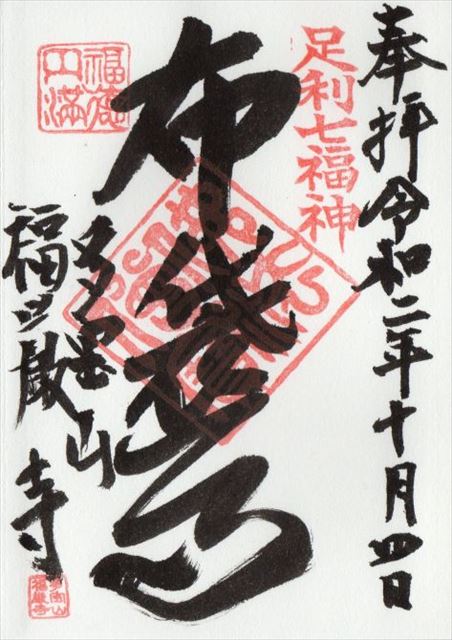 奉拝 令和二年十月四日
足利七福神
布袋尊
福徳円満
多宝山
福厳寺